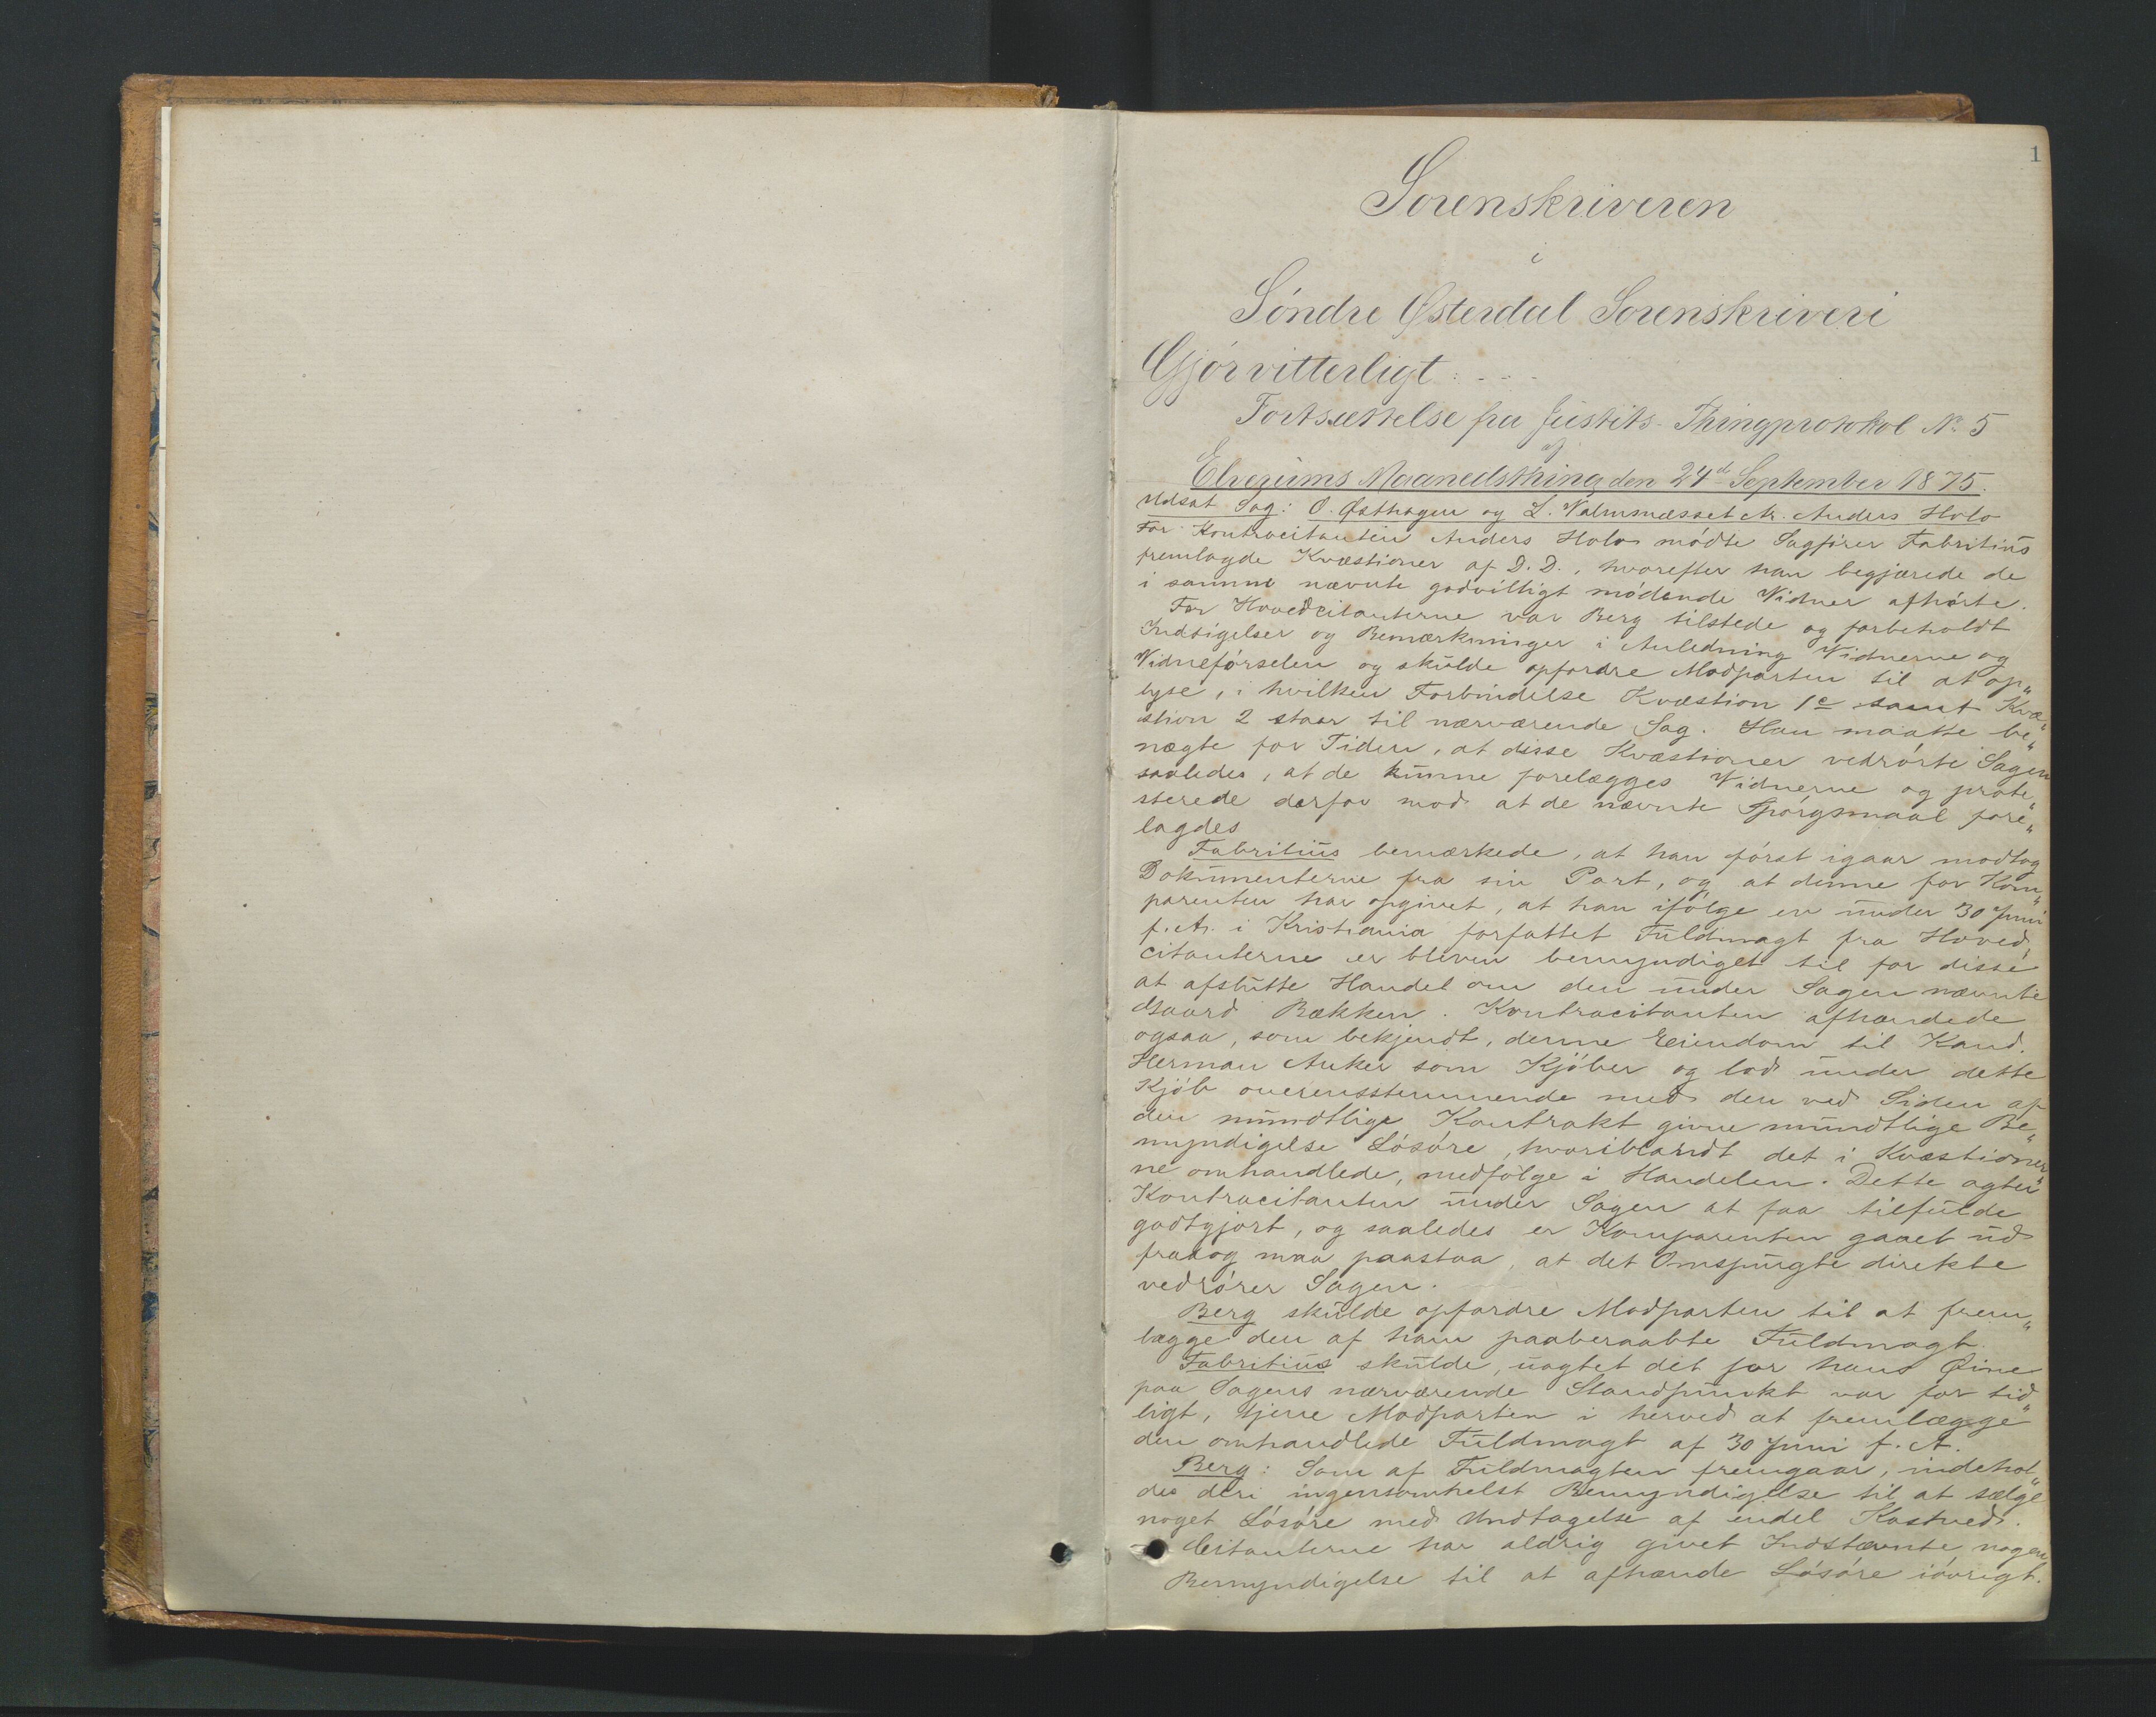 1
Sorenskriveren
i
Söndre Østerdal Sorenskriveri
Gjör vitterligt: - - -
Fortsættelse fra Justits-Thingprotokol No 5
af
Elverums Maanedsthing den 24de September 1875.
Udsat Sag: O. Østhagen og L. Valmsnæsset ctr. Anders Holo
For Kontracitanten Anders Holo mödte Sagförer Fabritius
fremlagde Kvæstioner af D. D., hvorefter han begjærede de
i samme nævnte godvilligt mödende Vidner afhörte.
For Hovedcitanterne var Berg tilstede og forbeholdt
Indsigelser og Bemærkninger i Anledning Vidnerne og
Vidneförselen og skulde opfordre Modparten til at op„
lyse, i hvilken Forbindelse Kvæstion 1c samt Kvæ„
stion 2 staar til nærværende Sag. Han maatte be„
nægte for Tiden, at disse Kvæstioner vedrörte Sagen
saaledes, at de kunne forelægges Vidnerne og prote„
sterede derfor mod at de nævnte Spörgsmaal fore„
lagdes
Fabritius bemærkede, at han först igaar modtog
Dokumenterne fra sin Part, og at denne for Kom„
parenten har opgivet, at han ifölge en under 30 Juni
f. A. i Kristiania forfattet Fuldmagt fra Hoved„
citanterne er bleven bemyndiget til for disse
at afslutte Handel om den under Sagen nævnte
Gaard Bækken. Kontracitanten afhændede
ogsaa, som bekjendt, denne Eiendom til Kand.
Herman Anker som Kjöber og lod under dette
Kjöb overensstemmende med den ved Siden af
den mundtlige Kontrakt givne mundtlige Be„
myndigelse Lösöre, hvoriblandt det i Kvæstioner„
ne omhandlede, medfölge i Handelen. Dette agter
Kontracitanten under Sagen at faa tilfulde
godtgjort, og saaledes er Komparenten gaaet ud
fra og maa paastaa, at det Omspurgte direkte
vedrörer Sagen.
Berg skulde opfordre Modparten til at frem„
lægge den af ham paaberaabte Fuldmagt.
Fabritius skulde, uagtet det for hans Øine
paa Sagens nærværende Standpunkt var for tid„
ligt, tjene Modparten i herved at fremlægge
den omhandlede Fuldmagt af 30 Juni f. A.
Berg: Som af Fuldmagten fremgaar, indehol„
des deri ingensomhelst Bemyndigelse til at sælge
noget Lösöre med Undtagelse af endel Kastved.
Citanterne har aldrig givet Indstævnte nogen
Bemyndigelse til at afhænde Lösöre iövrigt.